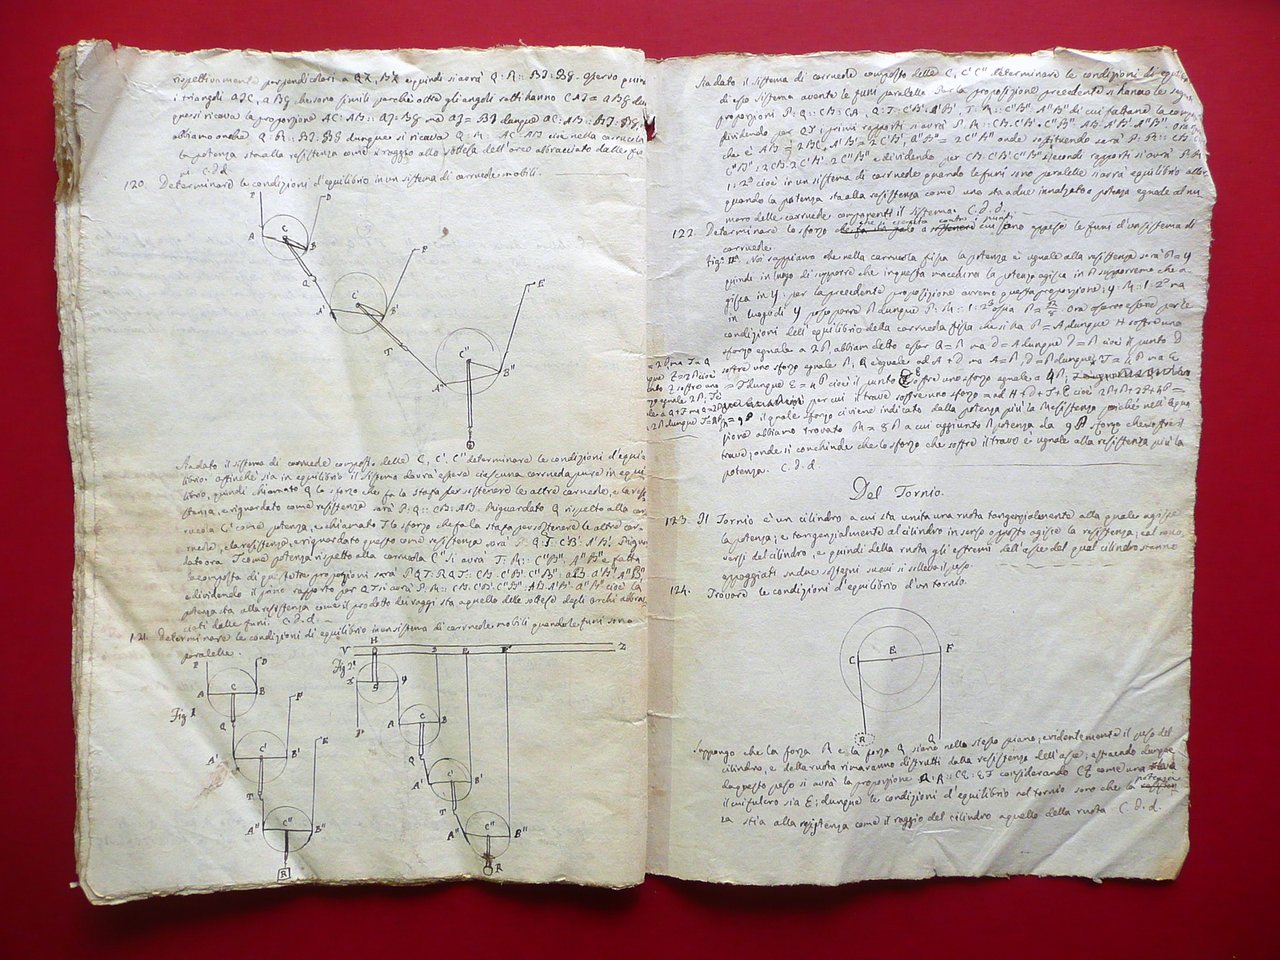 rispettivamente perpendicolari a QZ, BX e quindi si avrà Q : R :: BI : Bg. Osservo
i triangoli aIC, aBg che sono simili perchè oltre gli angoli retti hanno CaI = aBg
quasi ricava la proporzione AC : AB :: aI : Bg ma aI = BI dunque
abbiamo anche Q : R :: BI : Bg dunque si ricava Q : R :: AC : AB cioè nella carrucola
la potenza sta alla resistenza come il raggio alla sottesa dell'arco abbracciato dalle
C.d.d.
120. Determinare le condizioni d'equilibrio in un sistema di carrucole mobili.
P D
A C B
Q F
A' C' B'
T E
C''
A'' B''
R
Sia dato il sistema di carrucole composto delle C, C', C'' determinare le condizioni d'equi
librio. Affinchè sia in equilibrio il sistema dovrà essere ciascuna carrucola pure in equi
librio, quindi chiamato Q lo sforzo che fa la staffa per sostenere le altre carrucole, e la resi
stenza, e riguardato come resistenza sarà P : Q :: CB : AB. Riguardato Q rispetto alla car
rucola C' come potenza, e chiamato T lo sforzo che fa la staffa per sostenere le altre car
rucole, e la resistenza, e riguardato questo come resistenza sarà Q : T :: C'B' : A'B'.
dato ora T come potenza rispetto alla carrucola C'' si avrà T : R :: C''B'' : A''B'' e fatta
la composta di queste tre proporzioni sarà PQT : RQT :: CB.C'B'.C''B'' : AB.A'B'.A''B''
e dividendo il primo rapporto per QT si avrà P : R :: CB.C'B'.C''B'' : AB.A'B'.A''B'' cioè la
potenza sta alla resistenza come il prodotto dei raggi sta a quello delle sottese degli archi abbrac
ciati dalle funi. C.d.d.
121. Determinare le condizioni di equilibrio in un sistema di carrucole mobili quando le funi sono
parallele.
Fig 1
P D
A C B
Q F
A' C' B'
T E
A'' C'' B''
R
Fig 2
V H Z
X S
P
A C B
Q
A' C' B'
T
A'' C'' B''
R
Sia dato il sistema di carrucole composto delle C, C' C'' determinare le condizioni di equi
di esso sistema avente le funi parallele. Per la proposizione precedente si hanno le
proporzioni P : Q :: CB : CA, Q : T :: C'B' : A'B', T : R :: C''B'' : A''B'' di cui fattane la
dividendo per QT i primi rapporti si avrà P : R :: CB.C'B'.C''B'' : AB.A'B'.A''B''.
che è AB = 2BC, A'B' = 2C'B', A''B'' = 2C''B'' onde sostituendo sarà P : R :: CB.
C''B'' : 2CB.2C'B'.2C''B'' e dividendo per CB.C'B'.C''B'' i secondi rapporti si avrà P : R
1 : 2³ cioè in un sistema di carrucole quando le funi sono parallele si avrà equilibrio
quando la potenza sta alla resistenza come uno sta a due innalzato a potenza eguale al nu
mero delle carrucole componenti il sistema. C.d.d.
122. Determinare lo sforzo che si esercita contro i punti cui sono appese le funi d'un sistema di
carrucole.
Fig. 2ª. Noi sappiamo che nella carrucola fissa la potenza è uguale alla resistenza sarà
quindi in luogo di supporre che in questa macchina la potenza agisca in P supporremo che a
gisca in Y, per la precedente proposizione avremo questa proporzione; Y : R :: 1 : 2³ ma
in luogo di Y posso porre P dunque P : R :: 1 : 2³ ossia P = R/8. Ora osservo essere per le
condizioni dell'equilibrio della carrucola fissa che si ha P = A dunque H soffre uno
sforzo eguale a 2P, abbiam detto esser Q = P ma d = A dunque d = P cioè il punto D
soffre uno sforzo eguale P; Q è eguale ad A + d ma A = P, d = P dunque
= T dunque E = 4P cioè il punto E soffre uno sforzo eguale a 4P;
per cui il trave soffre uno sforzo = ad H + d + I + E cioè 2P + P + 2P + 4P =
= 9P il quale sforzo ci viene indicato dalla potenza più la resistenza poichè nell'equa
zione abbiamo trovato R = 8P a cui aggiunto P potenza da 9P sforzo che soffre il
trave; onde si conchiude che lo sforzo che soffre il trave è uguale alla resistenza più la
potenza. C.d.d.
Del Tornio.
123. Il Tornio è un cilindro a cui sta unita una ruota tangenzialmente alla quale agisce
la potenza; e tangenzialmente al cilindro in senso opposto agisce la resistenza; col
versi del cilindro, e quindi della ruota gli estremi dell'asse del qual cilindro stanno
appoggiati su due sostegni su cui si solleva il peso.
124. Trovare le condizioni d'equilibrio d'un tornio.
C E F
R Q
Suppongo che la forza R e la forza Q siano nello stesso piano; evidentemente il peso del
cilindro, e della ruota rimarranno distrutti dalla resistenza dell'asse; astraendo dunque
da questo peso si avrà la proporzione Q : R :: CE : EF considerando CF come una leva
il cui fulcro sia E; dunque le condizioni d'equilibrio nel tornio sono che la potenza
sta alla resistenza come il raggio del cilindro a quello della ruota C.d.d.